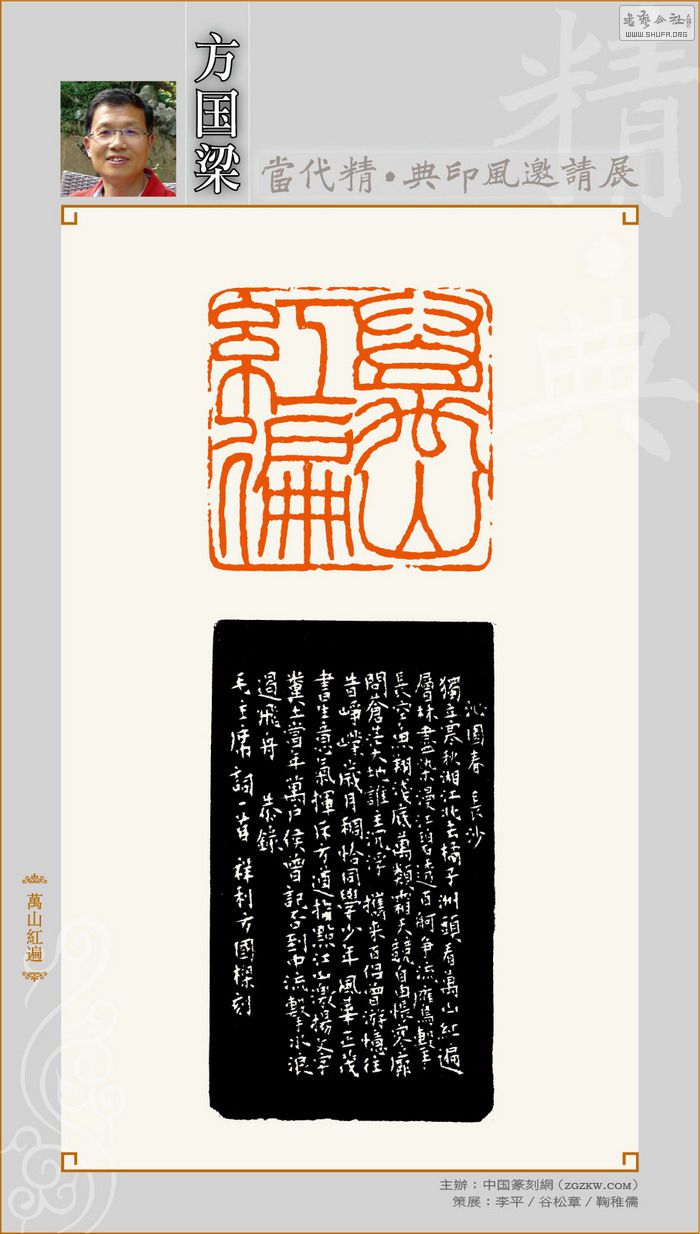 書法公社
WWW.SHUFA.ORG
方国梁
當代精·典印風邀請展
精·典
萬山紅遍
沁園春 長沙
獨立寒秋湘江北去橘子洲頭看萬山紅遍
層林盡染漫江碧透百舸爭流鷹擊
長空魚翔淺底萬類霜天競自由悵寥廓
問蒼茫大地誰主沉浮 攜来百侶曾游憶往
昔崢嶸歲月稠恰同學少年風華正茂
書生意氣揮斥方遒指點江山激揚文字
糞土當年萬戶侯曾記否到中流擊水浪
遏飛舟 恭錄
毛主席詞一首 祥利方國樑刻
萬山紅遍
主辦：中国篆刻網（ZGZKW.COM）
策展：李平 / 谷松章 / 鞠稚儒